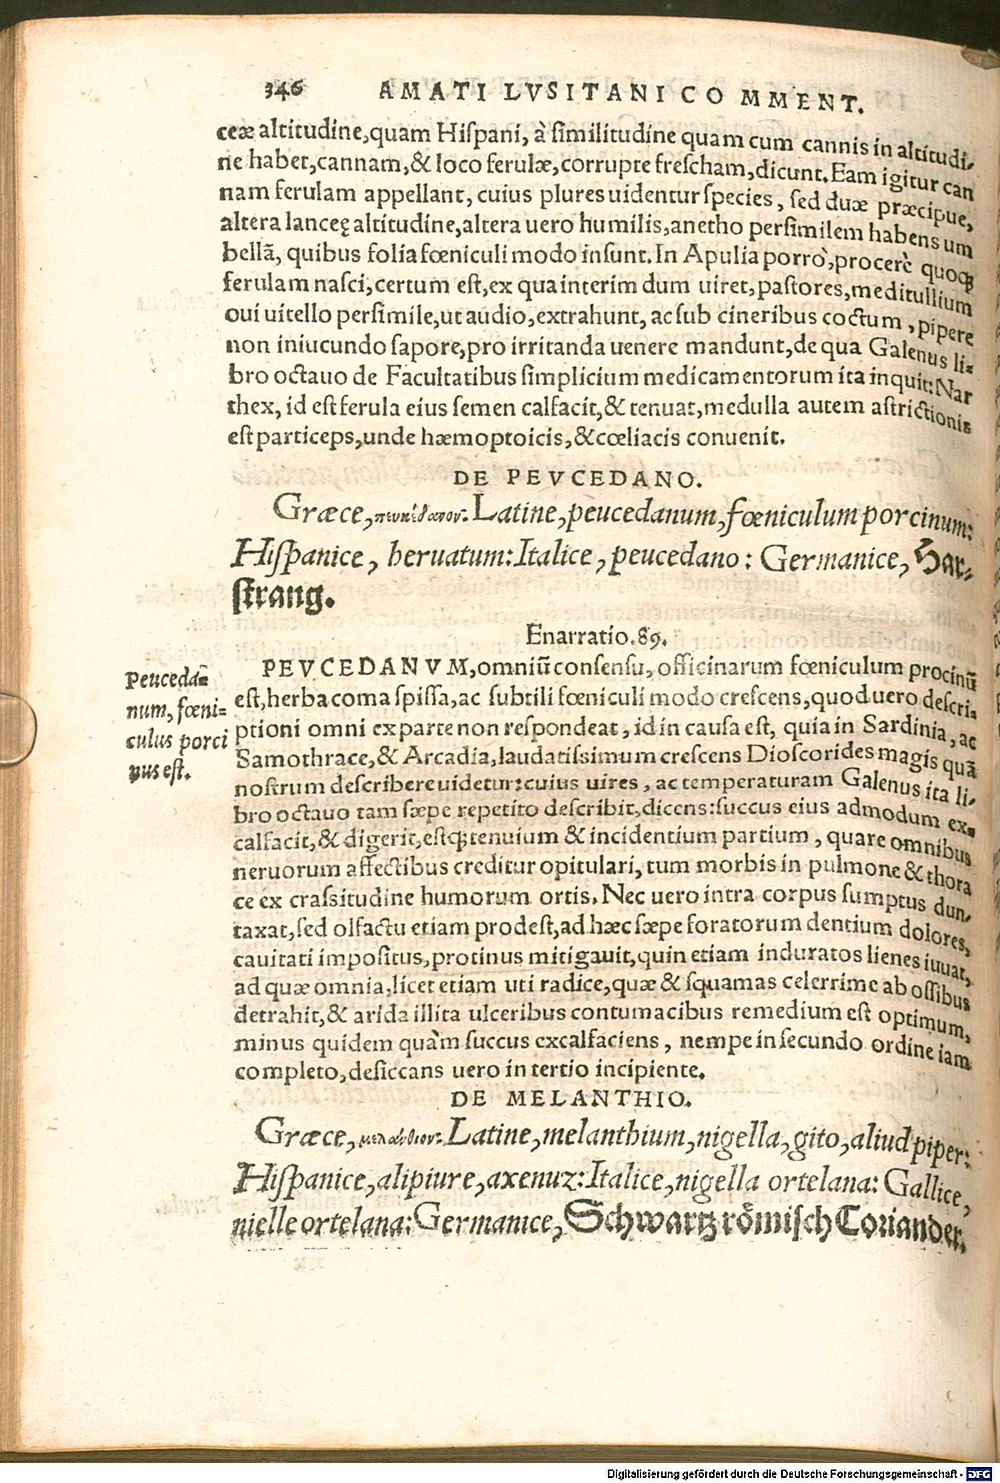 346 AMATI LVSITANI COMMENT.
ceæ altitudine,quam Hispani, à similitudine quam cum cannis in altitudi-
ne habet,cannam,& loco ferulæ,corrupte frescham,dicunt.Eam igitur can
nam ferulam appellant, cuius plures uidentur species, sed duæ præcipue,
altera lanceę altitudine,altera uero humilis,anetho persimilem habens um
bellã, quibus folia fœniculi modo insunt. In Apulia porrò,procerè quoq;
ferulam nasci,certum est,ex qua interim dum uiret,pastores,meditullium
oui uitello persimile,ut audio,extrahunt, ac sub cineribus coctum, pipere
non iniucundo sapore,pro irritanda uenere mandunt,de qua Galenus li-
bro octauo de Facultatibus simplicium medicamentorum ita inquit: Nar
thex, id est ferula eius semen calfacit,& tenuat,medulla autem astrictionis
est particeps,unde hæmoptoicis,& cœliacis conuenit.
DE PEVCEDANO.
Græce, πευκέδανον. Latine,peucedanum,fœniculum porcinum:
Hispanice, heruatum: Italice, peucedano: Germanice, Har-
strang.
Enarratio.89.
PEVCEDANVM,omniũ consensu, officinarum fœniculum procinũ
est,herba coma spissa,ac subtili fœniculi modo crescens,quod uero descri-
ptioni omni ex parte non respondeat, id in causa est, quia in Sardinia, ac
Samothrace,& Arcadia,laudatissimum crescens Dioscorides magis quã
nostrum describere uidetur: cuius uires, ac temperaturam Galenus ita li-
bro octauo tam sæpe repetito describit,dicens:succus eius admodum ex-
calfacit,& digerit,estq; tenuium & incidentium partium, quare omnibus
neruorum affectibus creditur opitulari, tum morbis in pulmone & thora
ce ex crassitudine humorum ortis. Nec uero intra corpus sumptus dun-
taxat,sed olfactu etiam prodest,ad hæc sæpe foratorum dentium dolores,
cauitati impositus,protinus mitigauit,quin etiam induratos lienes iuuat,
ad quæ omnia,licet etiam uti radice,quæ & squamas celerrime ab ossibus
detrahit,& arida illita ulceribus contumacibus remedium est optimum,
minus quidem quàm succus excalfaciens, nempe in secundo ordine iam
completo,desiccans uero in tertio incipiente.
Peucedã-
num, fœni-
culus porci
nus est.
DE MELANTHIO.
Græce, μελάνθιον. Latine,melanthium,nigella,gito,aliud piper:
Hispanice,alipiure,axenuz: Italice,nigella ortelana: Gallice,
nielle ortelana: Germanice, Schwartz römisch Coriander.
Digitalisierung gefördert durch die Deutsche Forschungsgemeinschaft - DFG